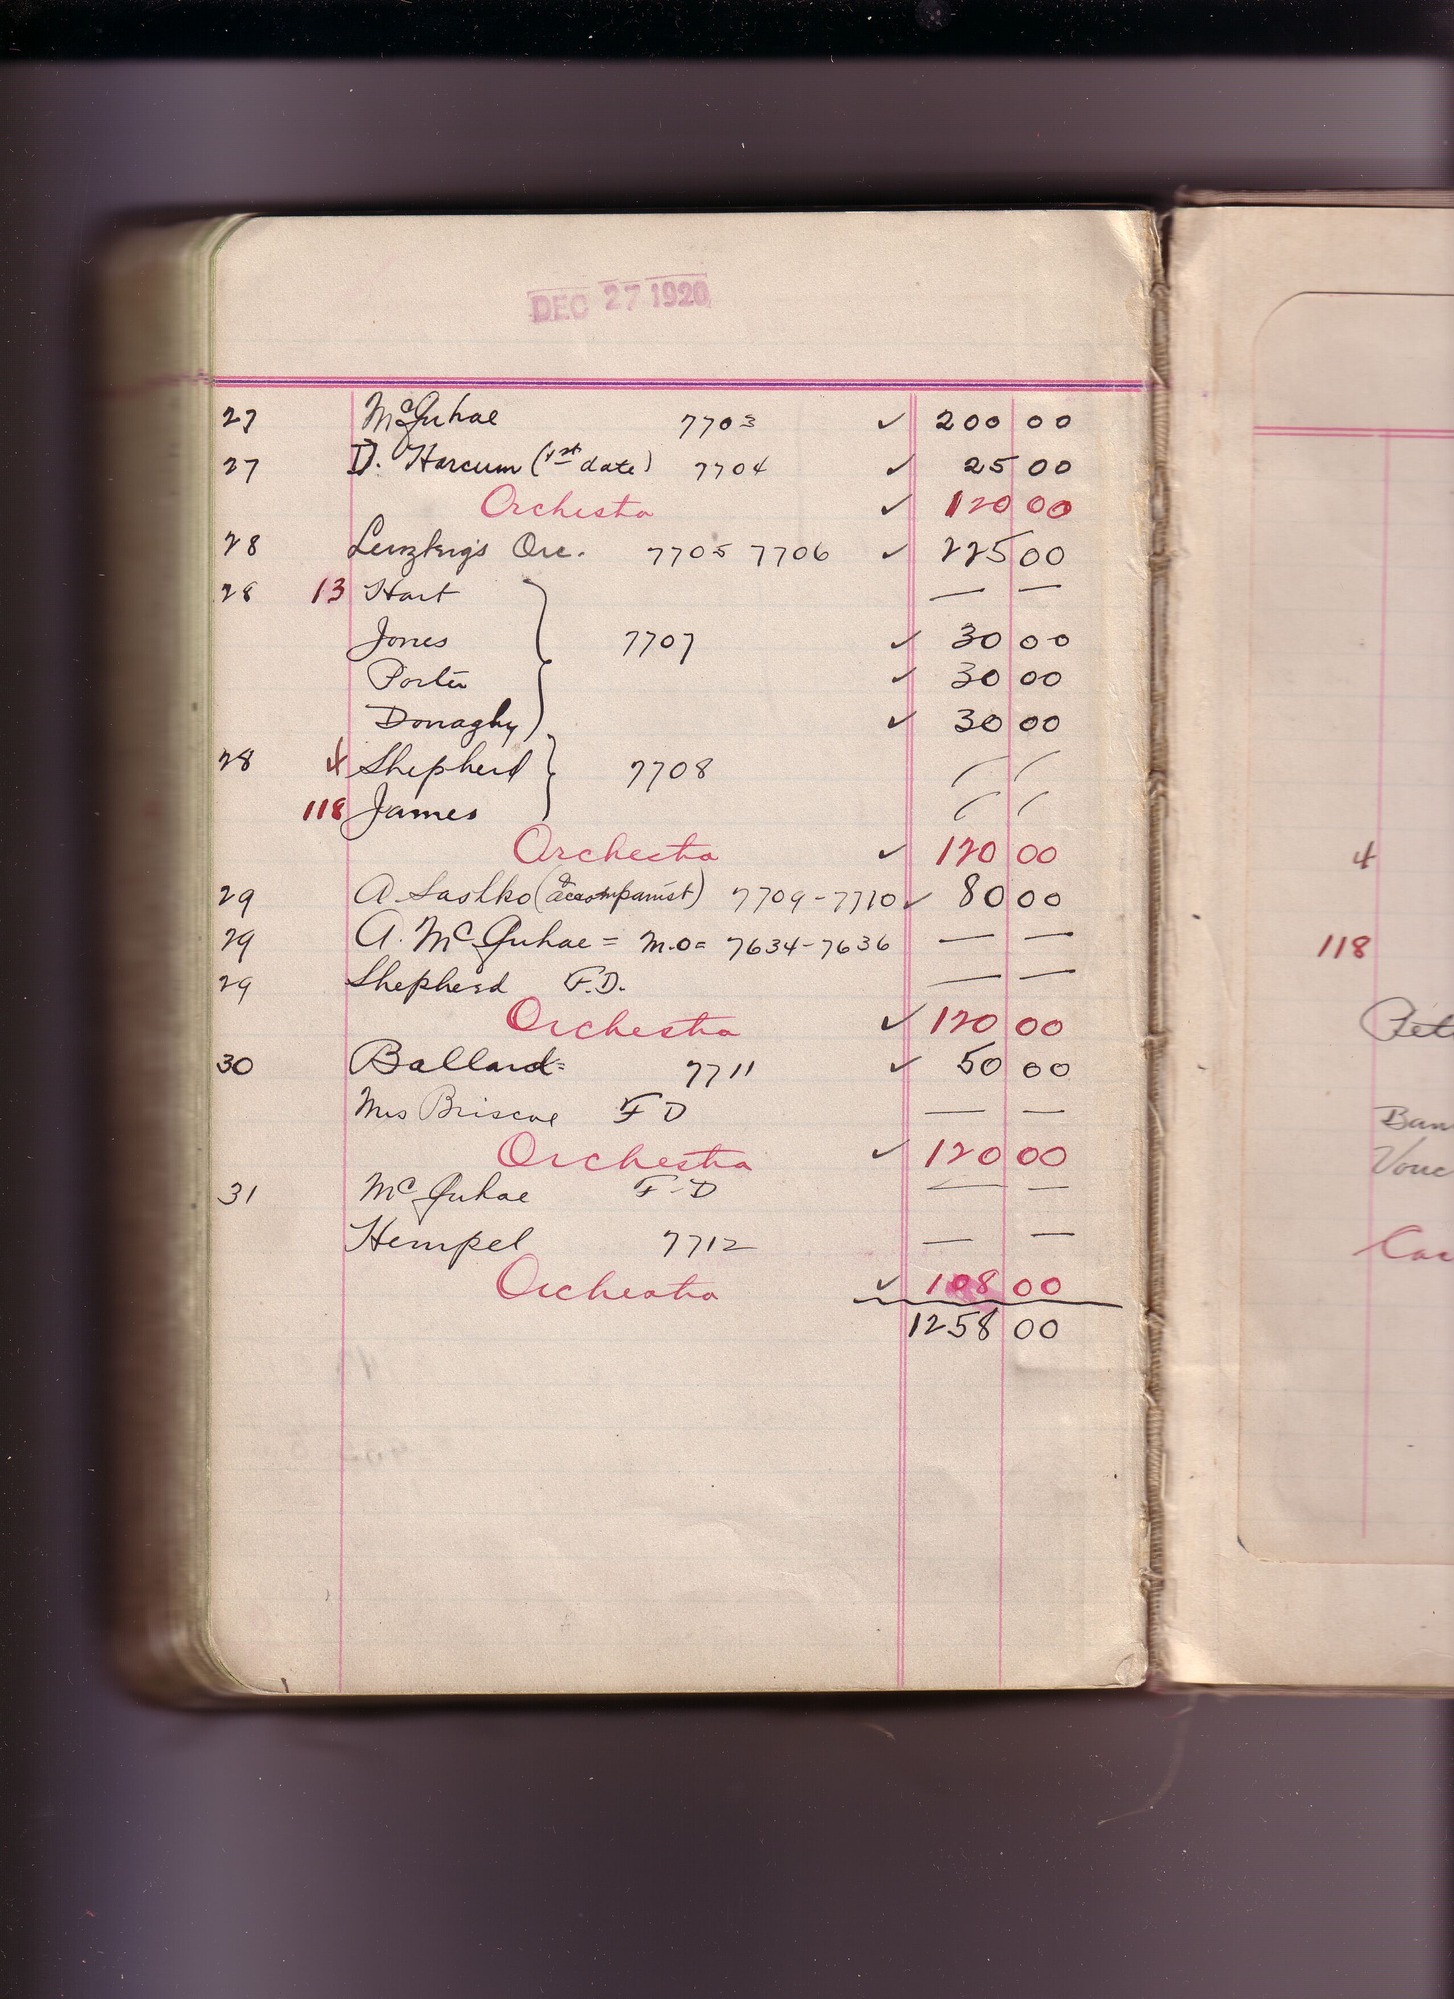 DEC 27 1920
27 McGuhae 7703 ✓ 200 00
27 D. Harcum (1st date) 7704 ✓ 25 00
Orchestra ✓ 120 00
28 Lenzberg's Orc. 7705 7706 ✓ 225 00
28 13 Hart — —
Jones 7707 ✓ 30 00
Porter ✓ 30 00
Donaghy ✓ 30 00
28 4 Shepherd 7708
118 James
Orchestra ✓ 120 00
29 A. Sashko (& accompanist) 7709-7710 ✓ 80 00
29 A. McGuhae = M.O= 7634-7636 — —
29 Shepherd F.D. — —
Orchestra ✓ 120 00
30 Ballard= 7711 ✓ 50 00
Mrs Briscoe F D — —
Orchestra ✓ 120 00
31 McGuhae F-D — —
Hempel 7712 — —
Orchestra ✓ 108 00
1258 00
4
118
Ban
Vouc